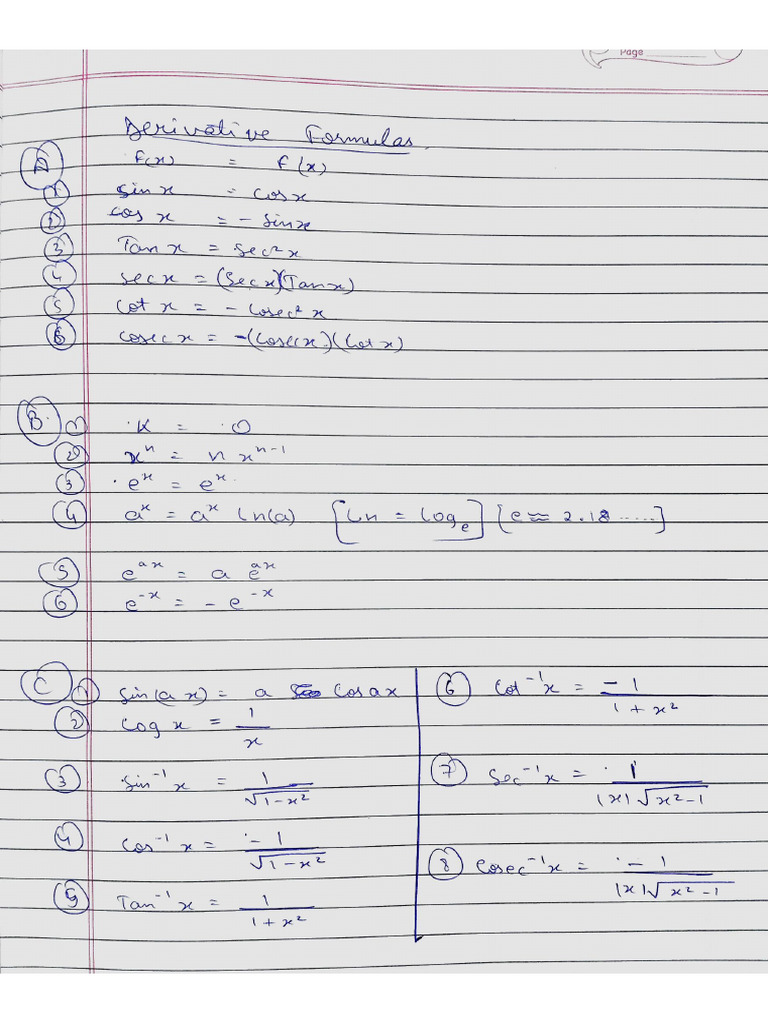 Page
Derivative Formulas
A f(x) = f'(x)
1 sin x = cos x
2 cos x = - sin x
3 Tan x = sec²x
4 sec x = (sec x)(Tan x)
5 cot x = - cosec² x
6 cosec x = -(cosec x)(cot x)
B 1 K = 0
2 xⁿ = n xⁿ⁻¹
3 eˣ = eˣ
4 aˣ = aˣ ln(a) [ln = logₑ] [e ≈ 2.18 .....]
5 e^{ax} = a e^{ax}
6 e^{-x} = - e^{-x}
C 1 sin(ax) = a cos ax
2 log x = 1/x
3 sin⁻¹x = 1/√(1-x²)
4 cos⁻¹x = -1/√(1-x²)
5 Tan⁻¹x = 1/(1+x²)
6 cot⁻¹x = -1/(1+x²)
7 sec⁻¹x = 1/(|x|√(x²-1))
8 cosec⁻¹x = -1/(|x|√(x²-1))